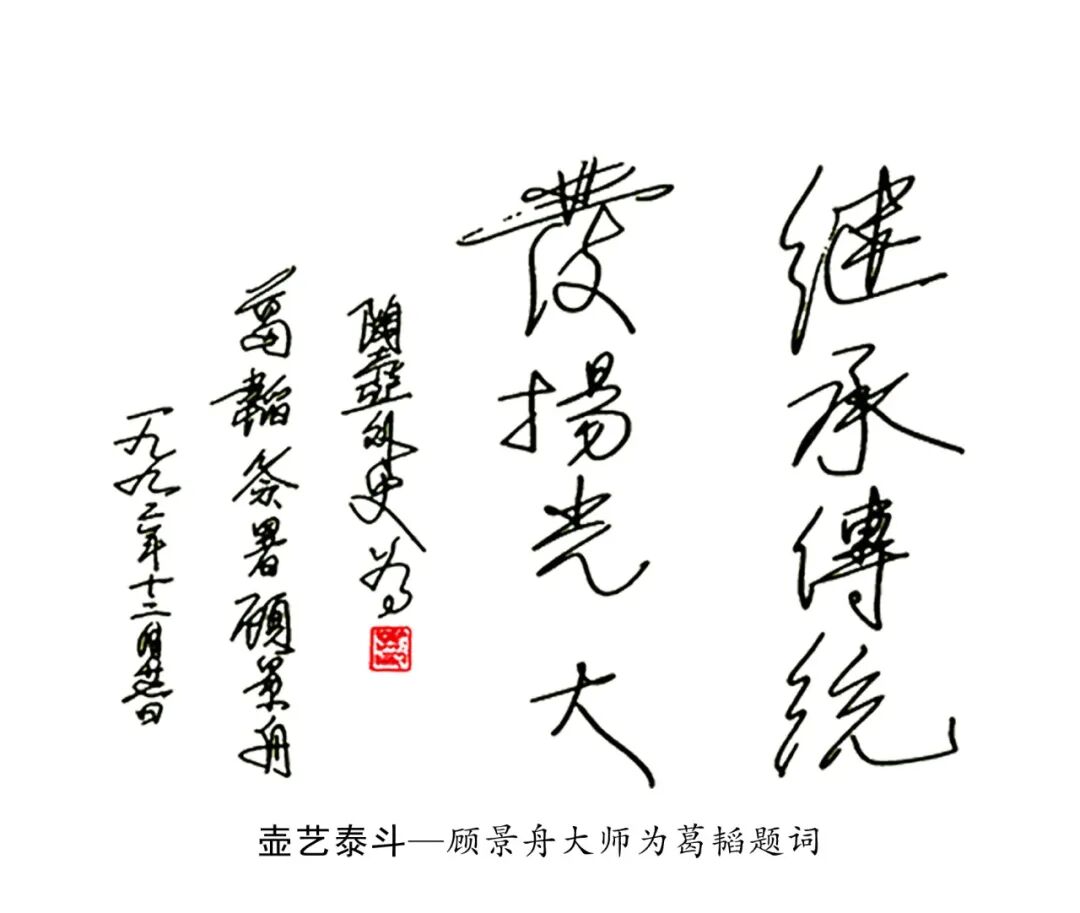 继承傳統
發揚光大
陶壺外史为
葛韜签署顾景舟
一九九二年十二月廿六日
壶艺泰斗—顾景舟大师为葛韬题词